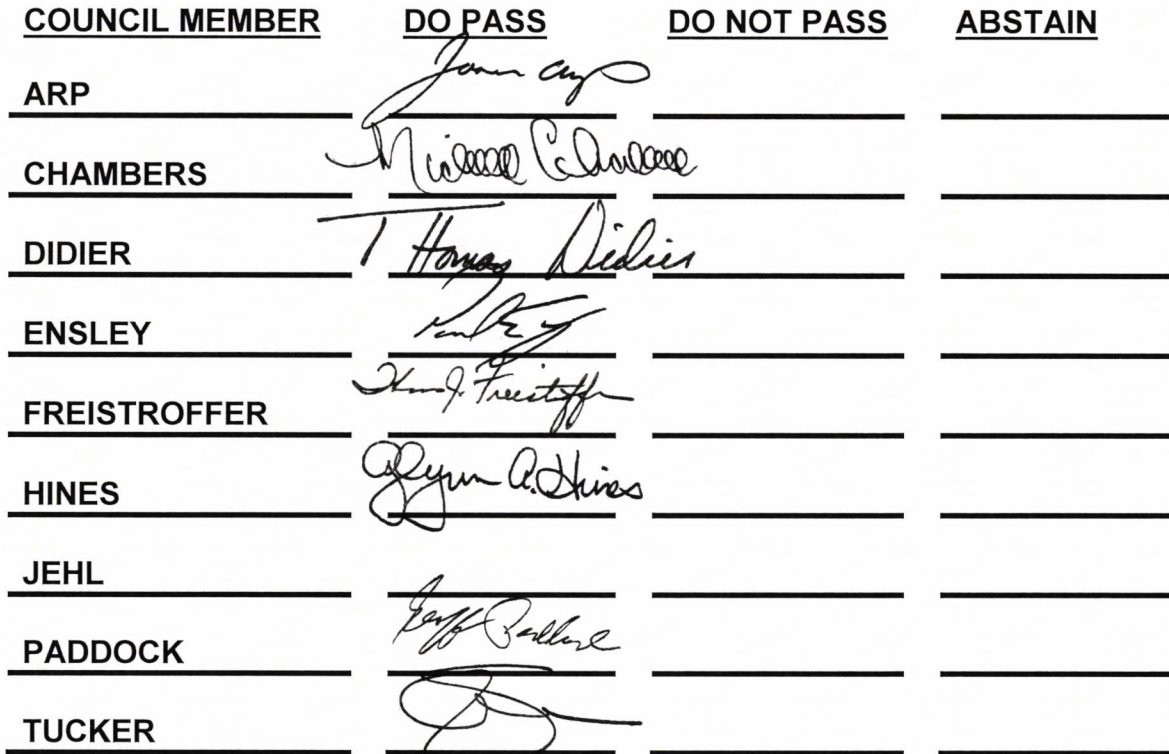 COUNCIL MEMBER DO PASS DO NOT PASS ABSTAIN
ARP
CHAMBERS
DIDIER Thomas Didier
ENSLEY
FREISTROFFER J. Freistroffer
HINES Glynn A. Hines
JEHL
PADDOCK Geoff Paddock
TUCKER